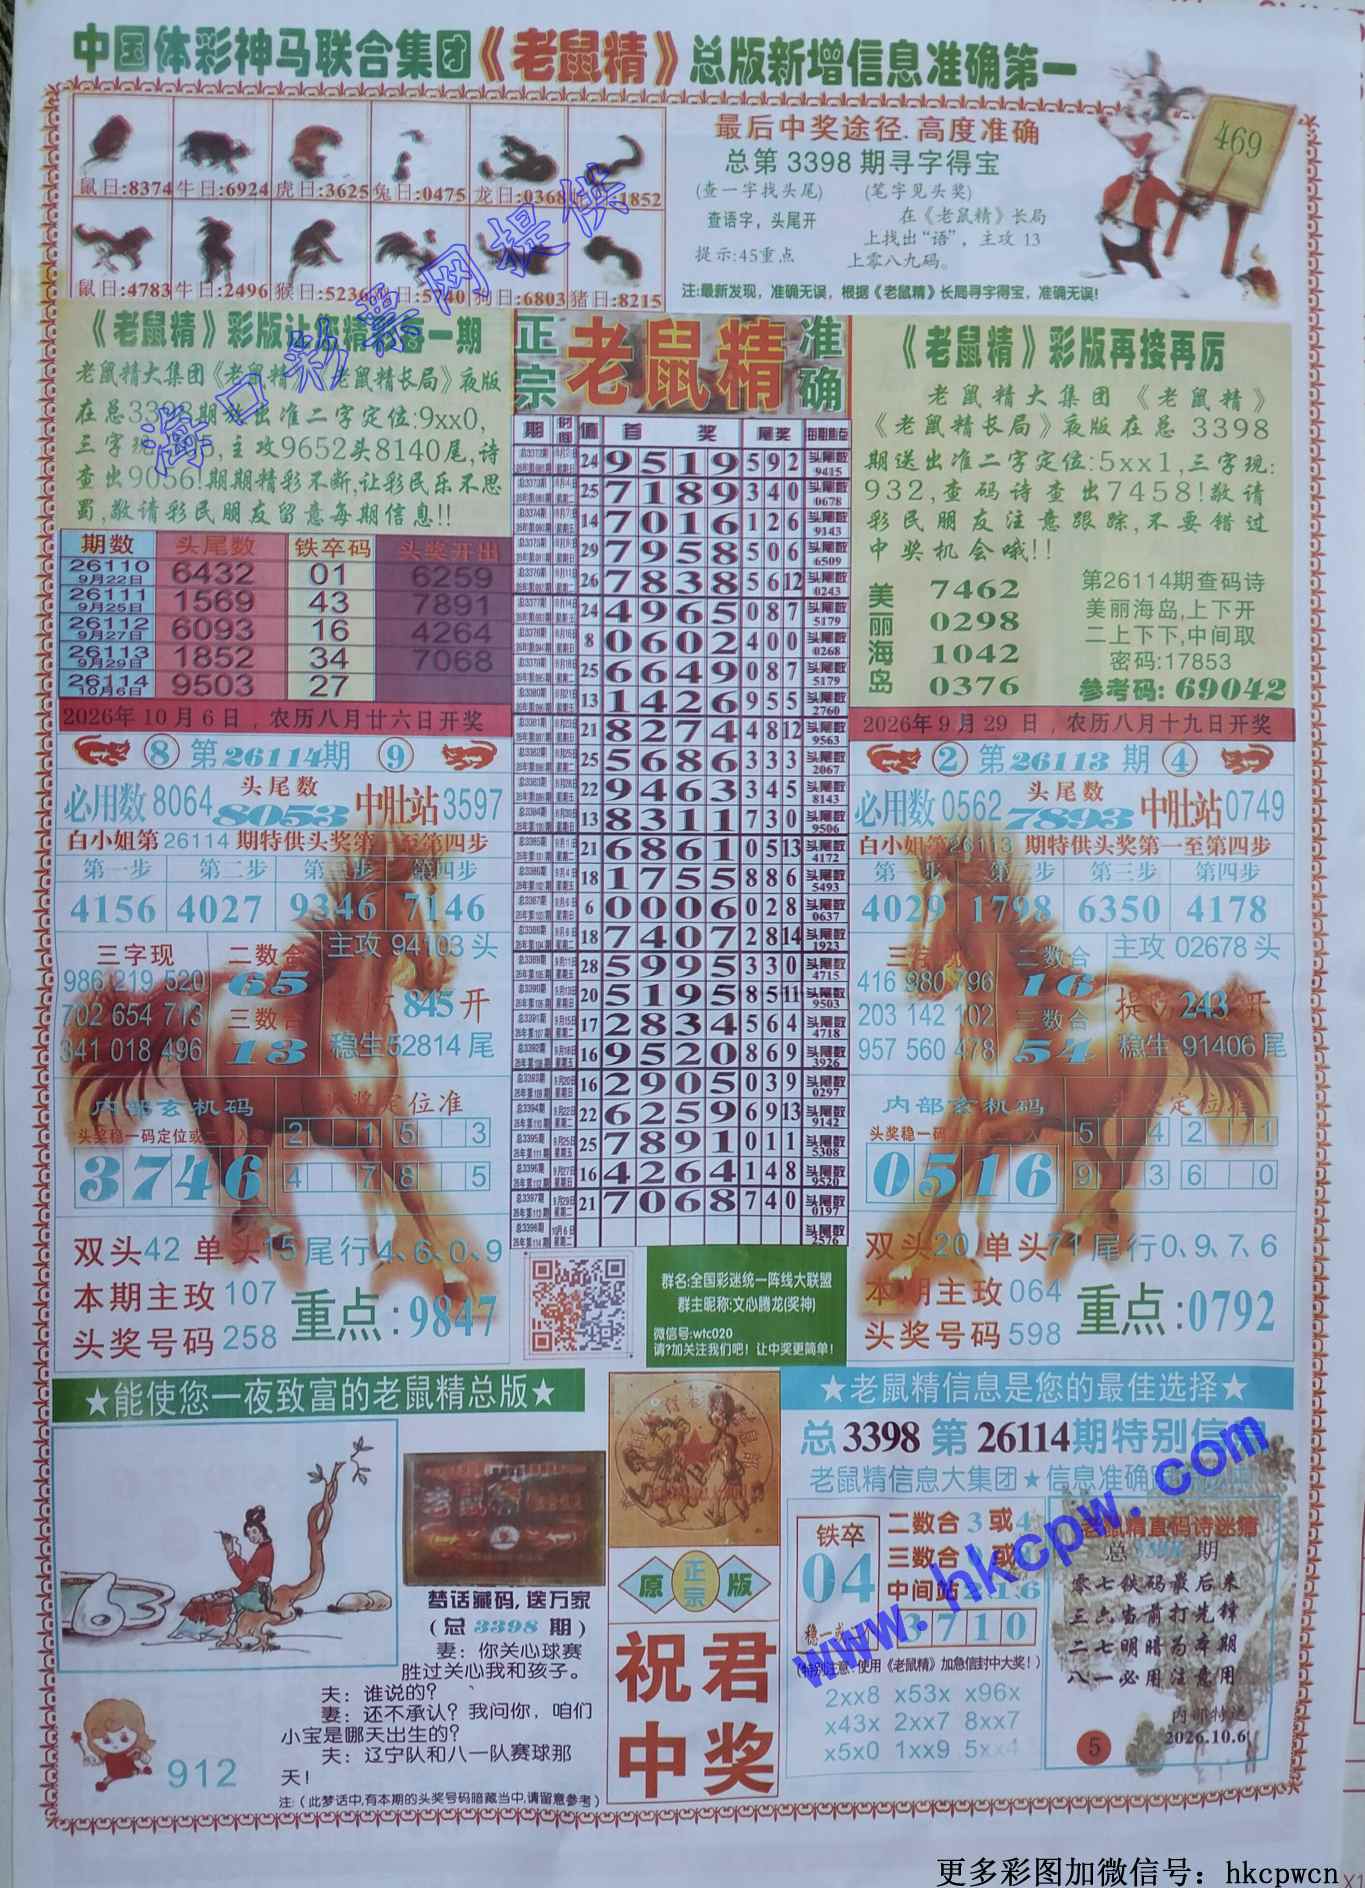 中国体彩神马联合集团《老鼠精》总版新增信息准确第一
鼠日:8374 牛日:6924 虎日:3625 兔日:0475 龙日:0368 1852
鼠日:4783 牛日:2496 猴日:5236 5740 狗日:6803 猪日:8215
最后中奖途径.高度准确
总第3398期寻字得宝
(查一字找头尾) (笔字见头奖)
查语字,头尾开
提示:45重点
在《老鼠精》长局
上找出“语”,主攻13
上零八九码。
注:最新发现,准确无误,根据《老鼠精》长局寻字得宝,准确无误!
469
《老鼠精》彩版让你精彩每一期
老鼠精大集团《老鼠精》《老鼠精长局》夜版
在总3398期放出准二字定位:9xx0,
主攻9652头8140尾,诗
查出9056!期期精彩不断,让彩民乐不思
蜀,敬请彩民朋友留意每期信息!!
期数 头尾数 铁卒码 头奖开出
26110 9月22日 6432 01 6259
26111 9月25日 1569 43 7891
26112 9月27日 6093 16 4264
26113 9月29日 1852 34 7068
26114 10月6日 9503 27
2026年10月6日,农历八月廿六日开奖
8 第26114期 9
必用数8064 头尾数 8053 中肚站3597
白小姐第26114期特供头奖第一至第四步
第一步 第二步 第三步 第四步
4156 4027 9346 7146
三字现 二数合 主攻 94103 头
986 219 520 65
702 654 713 三数合 845 开
341 018 496 13 稳生52814尾
内部玄机码 头奖定位准
3746
2 1 5 3
4 7 8 5
双头42 单头15 尾行4、6、0、9
本期主攻107
头奖号码258
重点:9847
正宗 老鼠精 准确
期 时间 值 首奖 尾奖
24 9519 592 头尾数 9415
25 7189 340 头尾数 0678
14 7016 126 头尾数 9143
29 7958 506 头尾数 6509
26 7838 5612 头尾数 0243
24 4965 087 头尾数 5179
8 0602 400 头尾数 0268
25 6649 087 头尾数 5179
13 1426 955 头尾数 2760
21 8274 4812 头尾数 9563
25 5686 333 头尾数 2067
22 9463 345 头尾数 8143
13 8311 730 头尾数 9506
21 6861 0513 头尾数 4172
18 1755 886 头尾数 5493
6 0006 028 头尾数 0637
18 7407 2814 头尾数 1923
28 5995 330 头尾数 4715
20 5195 8511 头尾数 9503
17 2834 564 头尾数 4718
16 9520 869 头尾数 3926
16 2905 039 头尾数 0297
22 6259 6913 头尾数 9142
25 7891 011 头尾数 5308
16 4264 148 头尾数 9520
21 7068 740 头尾数 0197
头尾数 2576
群名:全国彩迷统一阵线大联盟
群主昵称:文心腾龙(奖神)
微信号:wtc020
请?加关注我们吧!让中奖更简单!
《老鼠精》彩版再接再厉
老鼠精大集团《老鼠精》
《老鼠精长局》夜版在总3398
期送出准二字定位:5xx1,三字现:
932,查码诗查出7458!敬请
彩民朋友注意跟踪,不要错过
中奖机会哦!!
美丽海岛
7462
0298
1042
0376
第26114期查码诗
美丽海岛,上下开
二上下下,中间取
密码:17853
参考码:69042
2026年9月29日,农历八月十九日开奖
2 第26113期 4
必用数0562 头尾数 7893 中肚站0749
白小姐第26113期特供头奖第一至第四步
第二步 第三步 第四步
4029 1798 6350 4178
二数合 主攻 02678 头
416 980 796 16
203 142 102 三数合 243 开
957 560 478 54 稳生 91406 尾
内部玄机码
0516
5 4 2 1
9 3 6 0
双头20 单头71 尾行0、9、7、6
本期主攻064
头奖号码598
重点:0792
★能使您一夜致富的老鼠精总版★
梦话藏码,送万家
(总3398期)
妻:你关心球赛
胜过关心我和孩子。
夫:谁说的?
妻:还不承认?我问你,咱们
小宝是哪天出生的?
夫:辽宁队和八一队赛球那
天!
注:(此梦话中,有本期的头奖号码暗藏当中,请留意参考)
912
原 正宗 版
祝君
中奖
★老鼠精信息是您的最佳选择★
总3398第26114期特别信
老鼠精信息大集团★信息准确
铁卒
04
二数合3或4
三数合
中间站216
3710
(特别注意:使用《老鼠精》加急信封中大奖!)
2xx8 x53x x96x
x43x 2xx7 8xx7
x5x0 1xx9 5xx4
老鼠精直码诗迷猜
总3398期
零七铁码最后来
三六当前打先锋
二七明暗为本期
八一必用注意用
内部特送
2026.10.6
5
海口彩票网提供
www.hkcpw.com
更多彩图加微信号:hkcpwcn